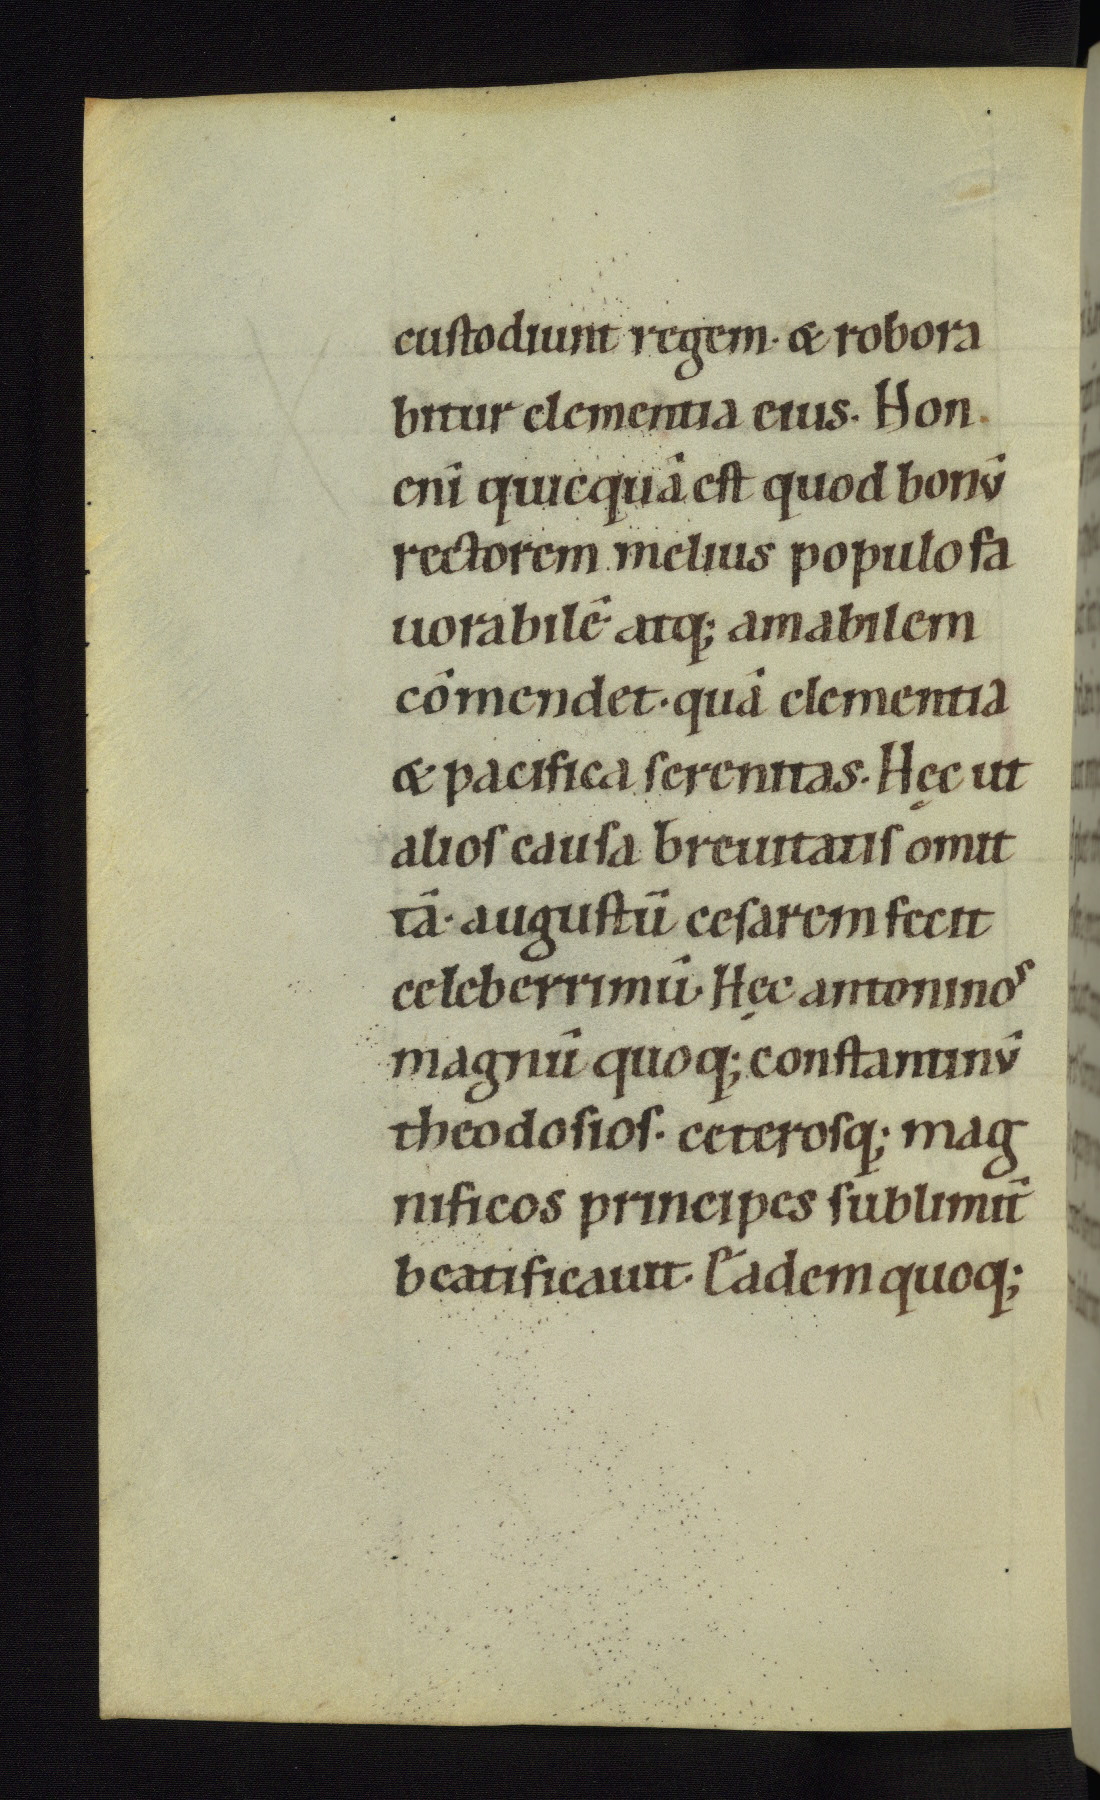 custodiunt regem· & robora
bitur clementia eius· Non
eni̅ quicqua̅ est quod bonu̅
rectorem melius populo fa
uorabile̅ atq; amabilem
co̅mendet· qua̅ clementia
& pacifica serenitas· Hęc ut
alios causa breuitatis omit
ta̅· augustu̅ cesarem fecit
celeberrimu̅· Hęc antoninos
magnu̅ quoq; constantinu̅
theodosios· ceterosq; mag
nificos principes sublimit̅
beatificauit· Eadem quoq;